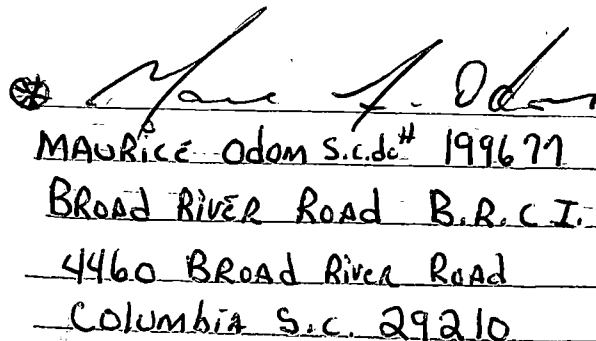 Maurice A. Odom
MAURiCE Odom S.c.dc# 199677
BROAd RivER ROAd B.R.C.I.
4460 BROAd River ROAd
ColumbiA S.c. 29210